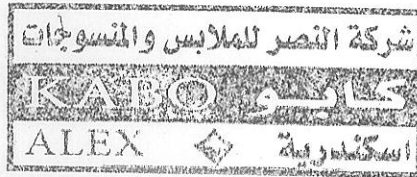 شركة النصر للملابس والمنسوجات
KABO كابو
ALEX اسكندرية